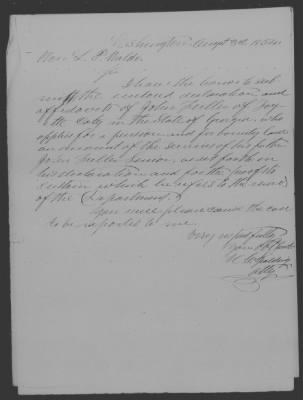 Washington Augt 3d 1854.
Hon. L. P. Waldo.
Sir
I have the honor to sub
mit the enclosed declaration and
affidavits of John Fuller of
County in the State of Georgia, who
applies for a pension and for bounty land
on account of the services of his father
John Fuller Senior, as set forth in
his declaration and for the proof to
sustain which he refers to the records
of the Department.
You will please cause the case
to be reported to me
Very respectfully
Your Obt Servt
Atty